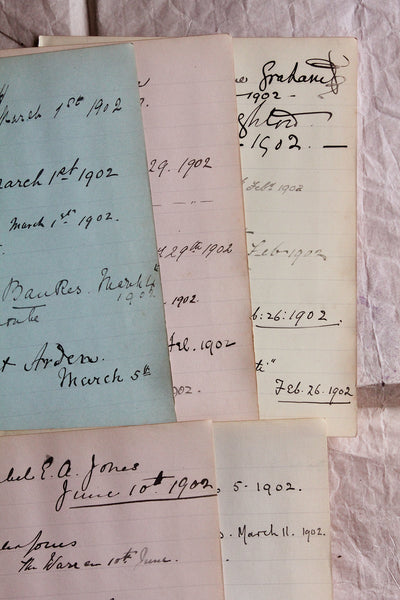 March 1st 1902
March 1st 1902
March 1st 1902.
Bankes. March 4th
1902
t Arden.
March 5th
29. 1902
29th 1902
1902.
1902
902.
Graham
1902 -
- 1902. -
Feb. 1902
Feb 1902
b. 26. 1902.
Feb. 26. 1902
E. A. Jones
June 10th 1902.
Jones
The Warren 10th June.
5. 1902.
March 11. 1902.